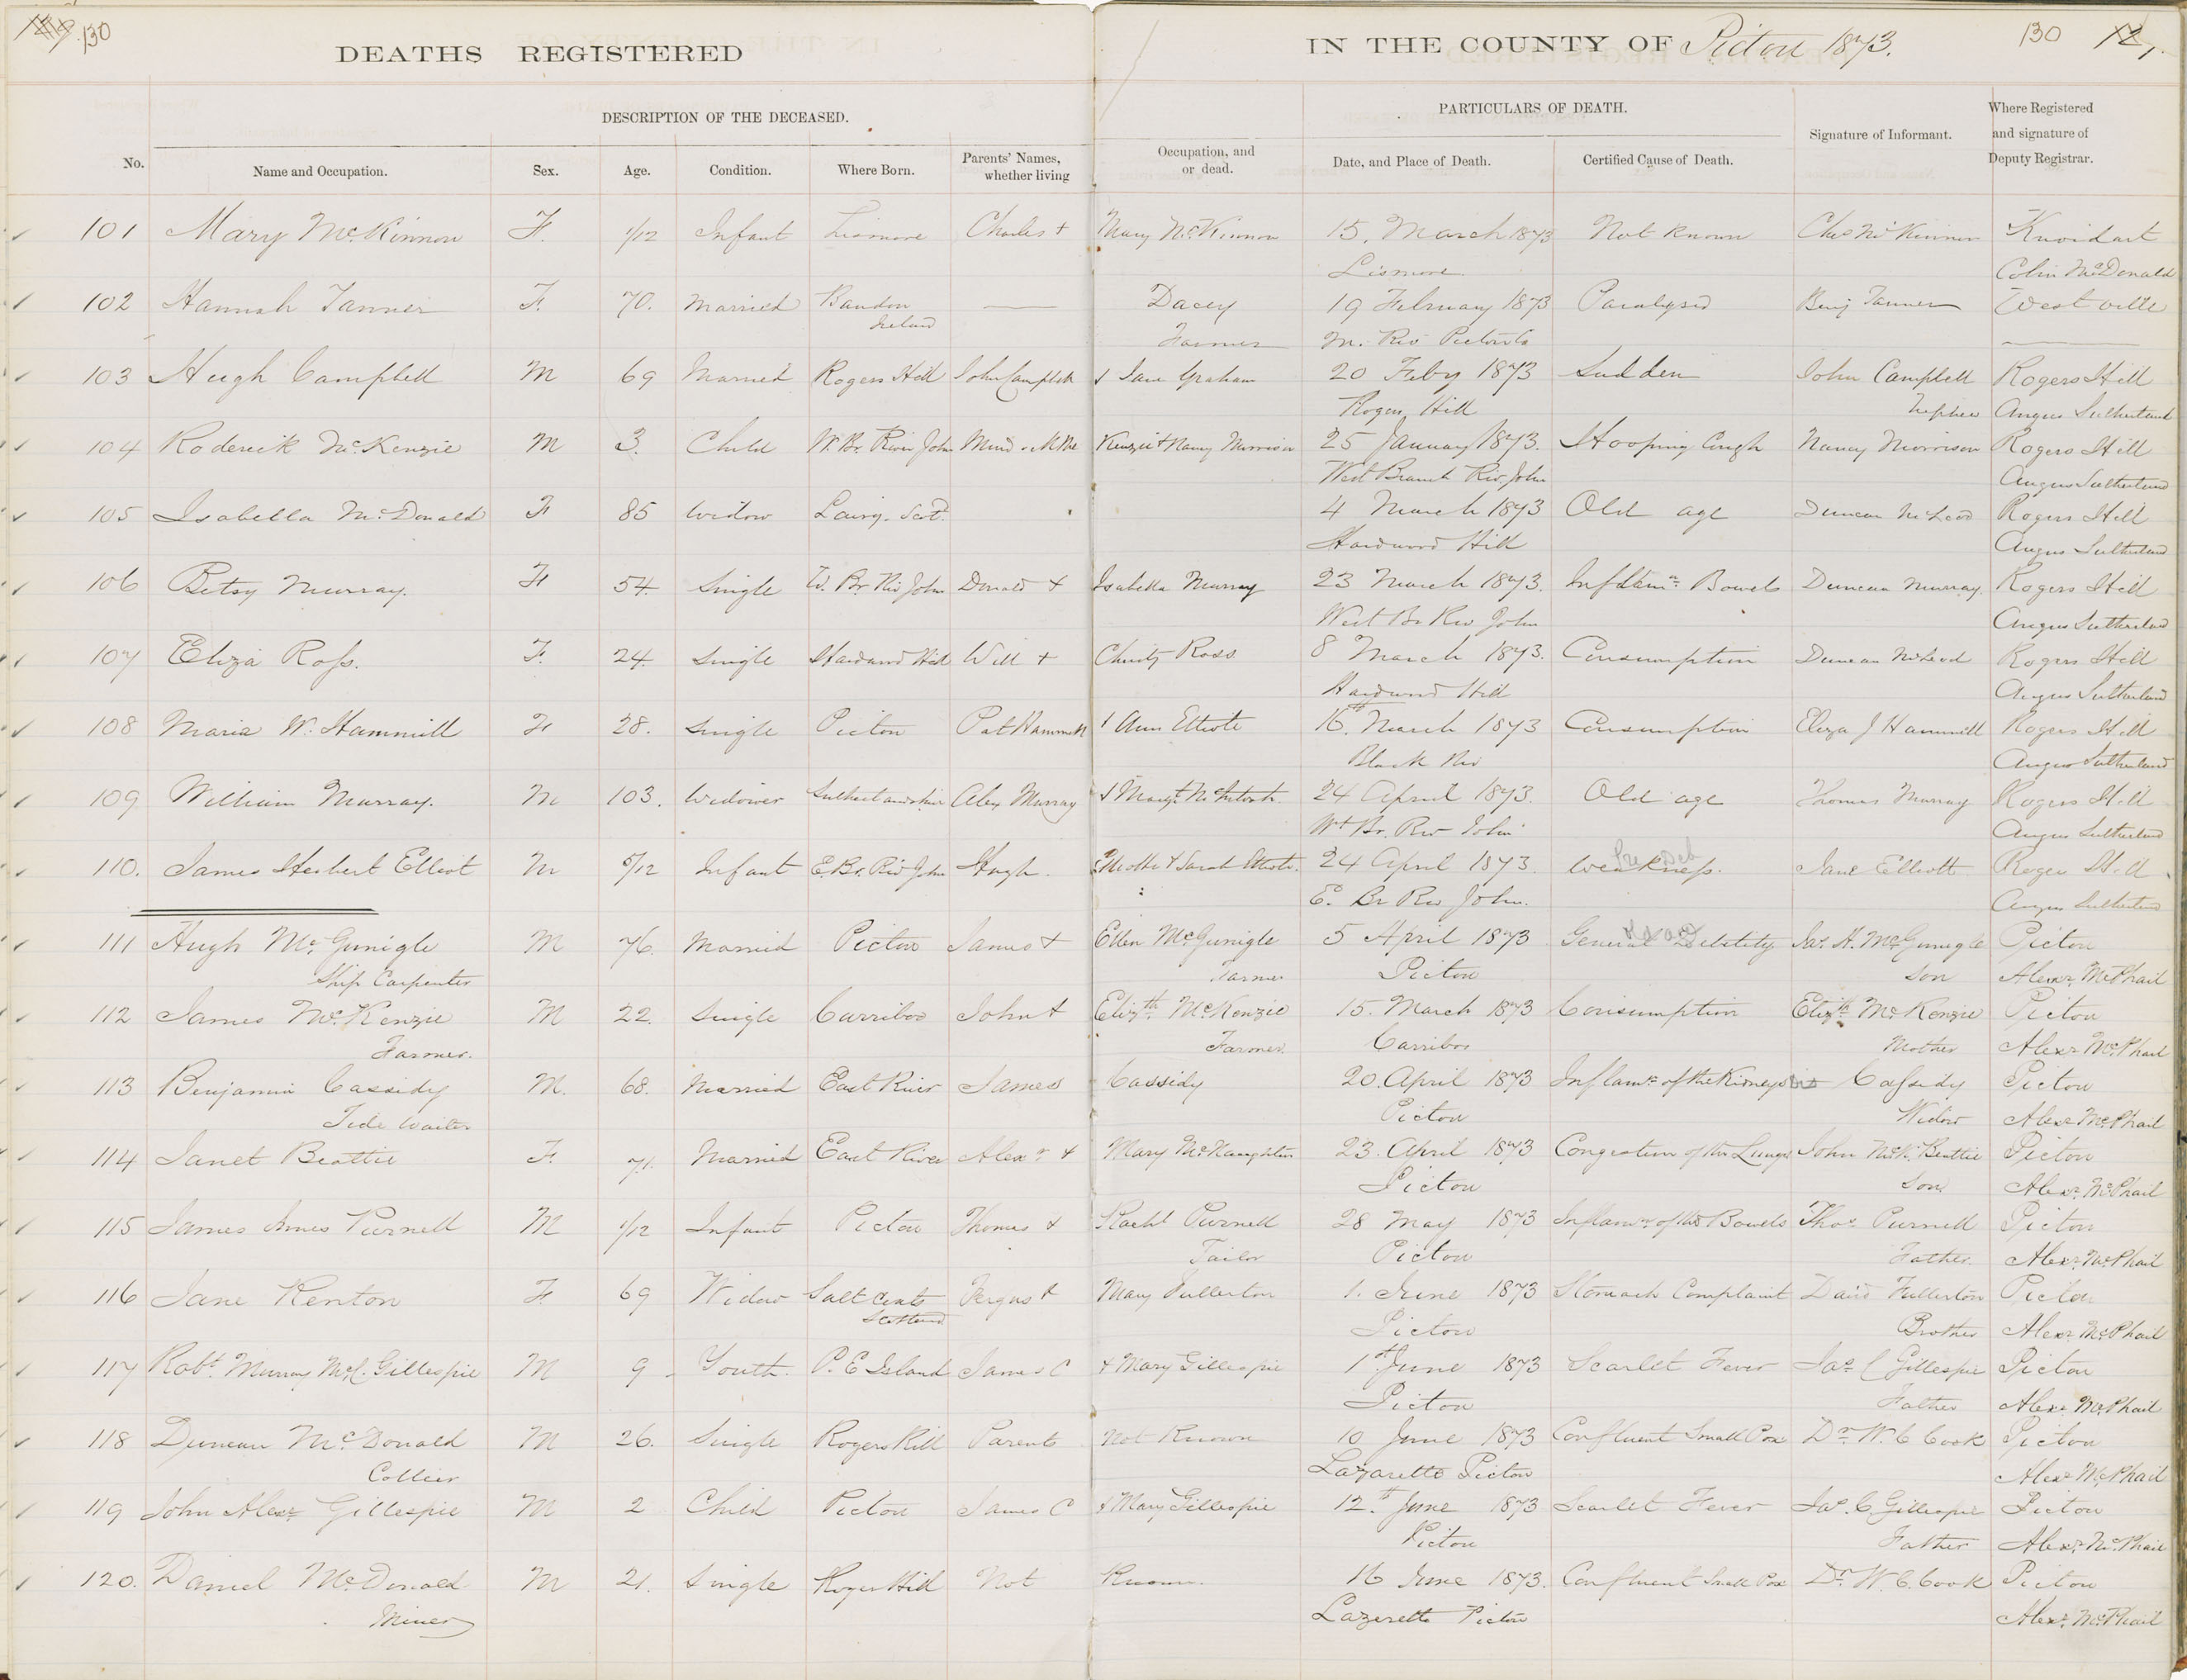 130
DEATHS REGISTERED
IN THE COUNTY OF Pictou 1873.
130
DESCRIPTION OF THE DECEASED.
PARTICULARS OF DEATH.
No. Name and Occupation. Sex. Age. Condition. Where Born. Parents' Names, whether living Occupation, and or dead. Date, and Place of Death. Certified Cause of Death. Signature of Informant. Where Registered and signature of Deputy Registrar.
101 Mary McKinnon F. 1/12 Infant Lismore Charles + Mary McKinnon 15. March 1873 Not known Chas McKinnon Knoidart
Lismore Colin McDonald
102 Hannah Tanner F. 70. Married Bandon — Dacey 19 February 1873 Paralysis Benj Tanner West ville
Ireland Farmer M. Riv Pictou Co
103 Hugh Campbell M 69 Married Rogers Hill John Campbell + Jane Graham 20 Feby 1873 Sudden John Campbell Rogers Hill
Rogers Hill Nephew Angus Sutherland
104 Roderick McKenzie M 3. Child W. Br. River John Murdock McKenzie + Nancy Morrison 25 January 1873. Hooping Cough Nancy Morrison Rogers Hill
West Branch Riv. John Angus Sutherland
105 Isabella McDonald F 85 Widow Lairg. Scotd. 4 March 1873 Old age Duncan McLeod Rogers Hill
Hardwood Hill Angus Sutherland
106 Betsy Murray. F 54. Single W. Br. Riv John Donald + Isabella Murray 23 March 1873. Inflamn. Bowels Duncan Murray. Rogers Hill
West Br Riv John Angus Sutherland
107 Eliza Ross. F. 24. Single Hardwood Hill Will + Christy Ross 8 March 1873. Consumption Duncan McLeod Rogers Hill
Hardwood Hill Angus Sutherland
108 Maria W. Hammill F 28. Single Pictou Pat Hammill + Ann Elliott 16th March 1873 Consumption Eliza J Hammill Rogers Hill
Black Riv Angus Sutherland
109 William Murray. M 103. Widower Sutherlandshire Alex Murray + Margt. McIntosh. 24 April 1873. Old age Thomas Murray Rogers Hill
Wt Br. Riv John Angus Sutherland
110. James Herbert Elliot M 5/12 Infant E. Br. Riv John Hugh Elliotte + Sarah Elliott. 24 April 1873. Weakness. Jane Elliott Rogers Hill
E. Br Riv John. Angus Sutherland
111 Hugh McGunigle M 76. Married Pictou James + Ellen McGunigle 5 April 1873 General Debility Jas. H. McGunigle Pictou
Ship Carpenter Farmer Pictou Son Alexr. McPhail
112 James McKenzie M 22. Single Carriboo John + Elizth. McKenzie 15. March 1873 Consumption Elizth McKenzie Pictou
Farmer. Farmer. Carriboo Mother Alexr McPhail
113 Benjamin Cassidy M. 68. Married East River James Cassidy 20. April 1873 Inflamn. of the Kidneys Cassidy Pictou
Tide Waiter Pictou Widow Alexr McPhail
114 Janet Beattie F. 71. Married East River Alexr + Mary McNaughton 23. April 1873 Congestion of the Lungs John McK. Beattie Pictou
Pictou Son Alexr. McPhail
115 James Innes Purnell M 1/12 Infant Pictou Thomas + Rachl Purnell 28 May 1873 Inflamn. of the Bowels Thos. Purnell Pictou
Tailor Pictou Father. Alexr. McPhail
116 Jane Renton F. 69 Widow Salt Coats Fergus + Mary Fullerton 1. June 1873 Stomach Complaint David Fullerton Pictou
Scotland Pictou Brother Alexr McPhail
117 Robt. Murray McC. Gillespie M 9 Youth. P. E Island James C + Mary Gillespie 1st June 1873 Scarlet Fever Jas C Gillespie Pictou
Pictou Father Alexr McPhail
118 Duncan McDonald M 26. Single Rogers Hill Parents not Known 10 June 1873 Confluent Small Pox Dr. W. C Cook Pictou
Collier Lazaretto Pictou Alexr McPhail
119 John Alexr Gillespie M 2 Child Pictou James C + Mary Gillespie 12.th June 1873 Scarlet Fever Jas. C. Gillespie Pictou
Pictou Father Alexr. McPhail
120. Daniel McDonald M 21. Single Rogers Hill Not Known. 16 June 1873. Confluent Small Pox Dr. W. C. Cook Pictou
Miner Lazaretto Pictou Alexr. McPhail